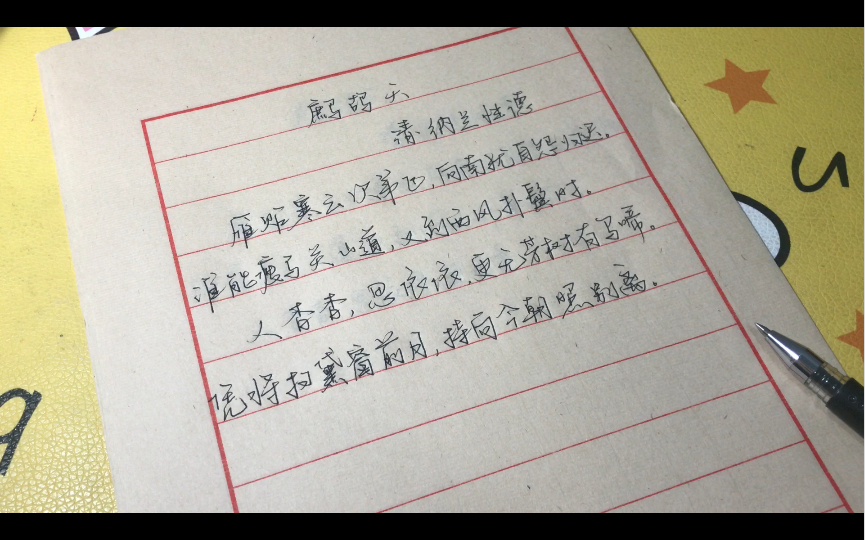 鹧鸪天
清·纳兰性德
雁贴寒云次第飞，向南犹自怨归迟。
谁能瘦马关山道，又到西风扑鬓时。
人杳杳，思依依，更无芳树有乌啼。
凭将扫黛窗前月，持向今朝照别离。